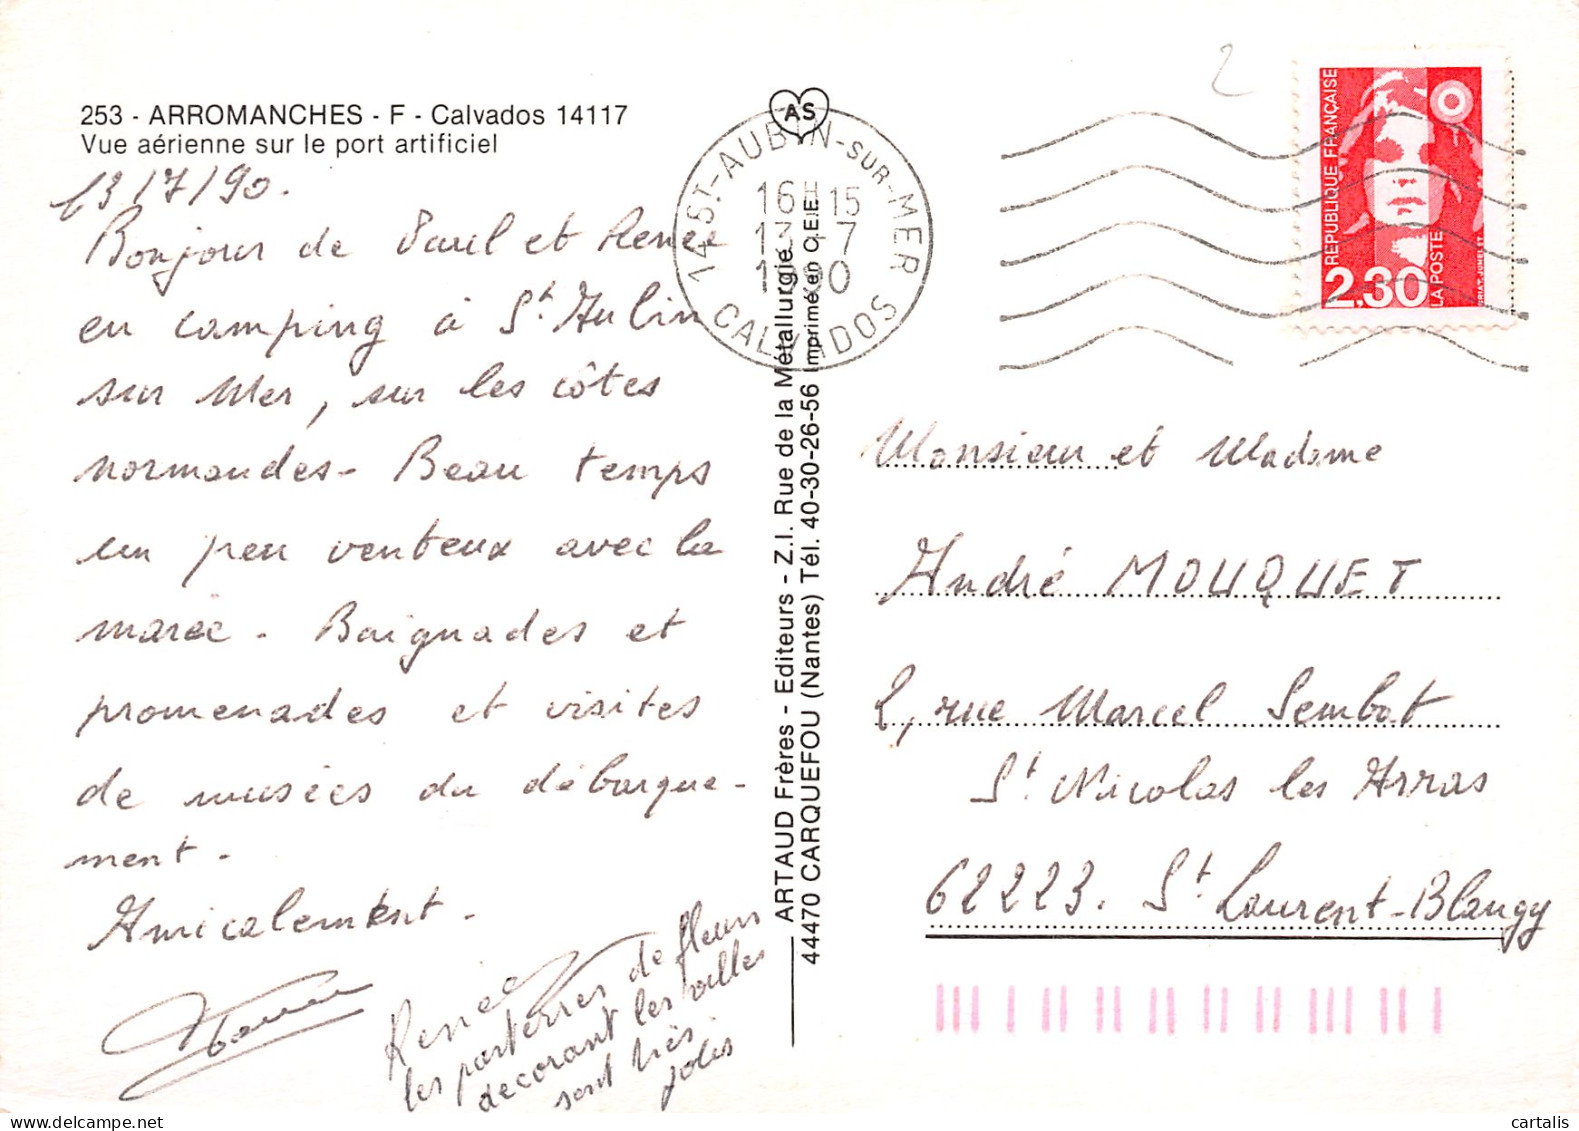 253 - ARROMANCHES - F - Calvados 14117
Vue aérienne sur le port artificiel
13/7/90.
Bonjour de Paul et Renée
en camping à St Aubin
sur Mer, sur les côtes
normandes - Beau temps
un peu venteux avec la
marée - Baignades et
promenades et visites
de musées du débarque-
ment -
Amicalement.
Renée
les parterres de fleurs
décorant les villes
sont très
jolis
ARTAUD Frères - Editeurs - Z.I. Rue de la Métallurgie
44470 CARQUEFOU (Nantes) Tél. 40-30-26-56 Imprimé en C.E.E.
AS
14 ST-AUBIN-SUR-MER
16H15
13-7
1990
CALVADOS
2
RÉPUBLIQUE FRANÇAISE
2,30
LA POSTE
BRIAT. JUMELET
Monsieur et Madame
André MOUQUET
2, rue Marcel Sembat
St Nicolas les Arras
62223. St Laurent-Blangy
cartalis